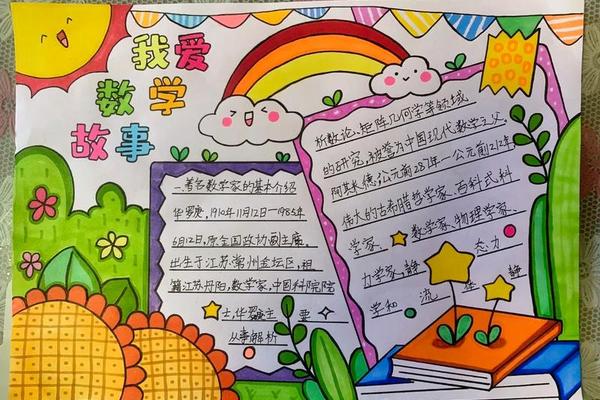 我爱
数学
故事
一、著名数学家的基本介绍
华罗庚，1910年11月12日—1985年
6月12日，原全国政协副主席，
出生于江苏常州金坛区，祖
籍江苏丹阳，数学家，中国科院院
士，华罗庚主要
从事解析
析数论、矩阵几何学等领域
的研究，被誉为中国现代数学之父。
阿基米德，公元前287年—公元前212年
伟大的古希腊哲学家、百科式科
学家、数学家、物理学家、
力学家，静态力
学和流体静